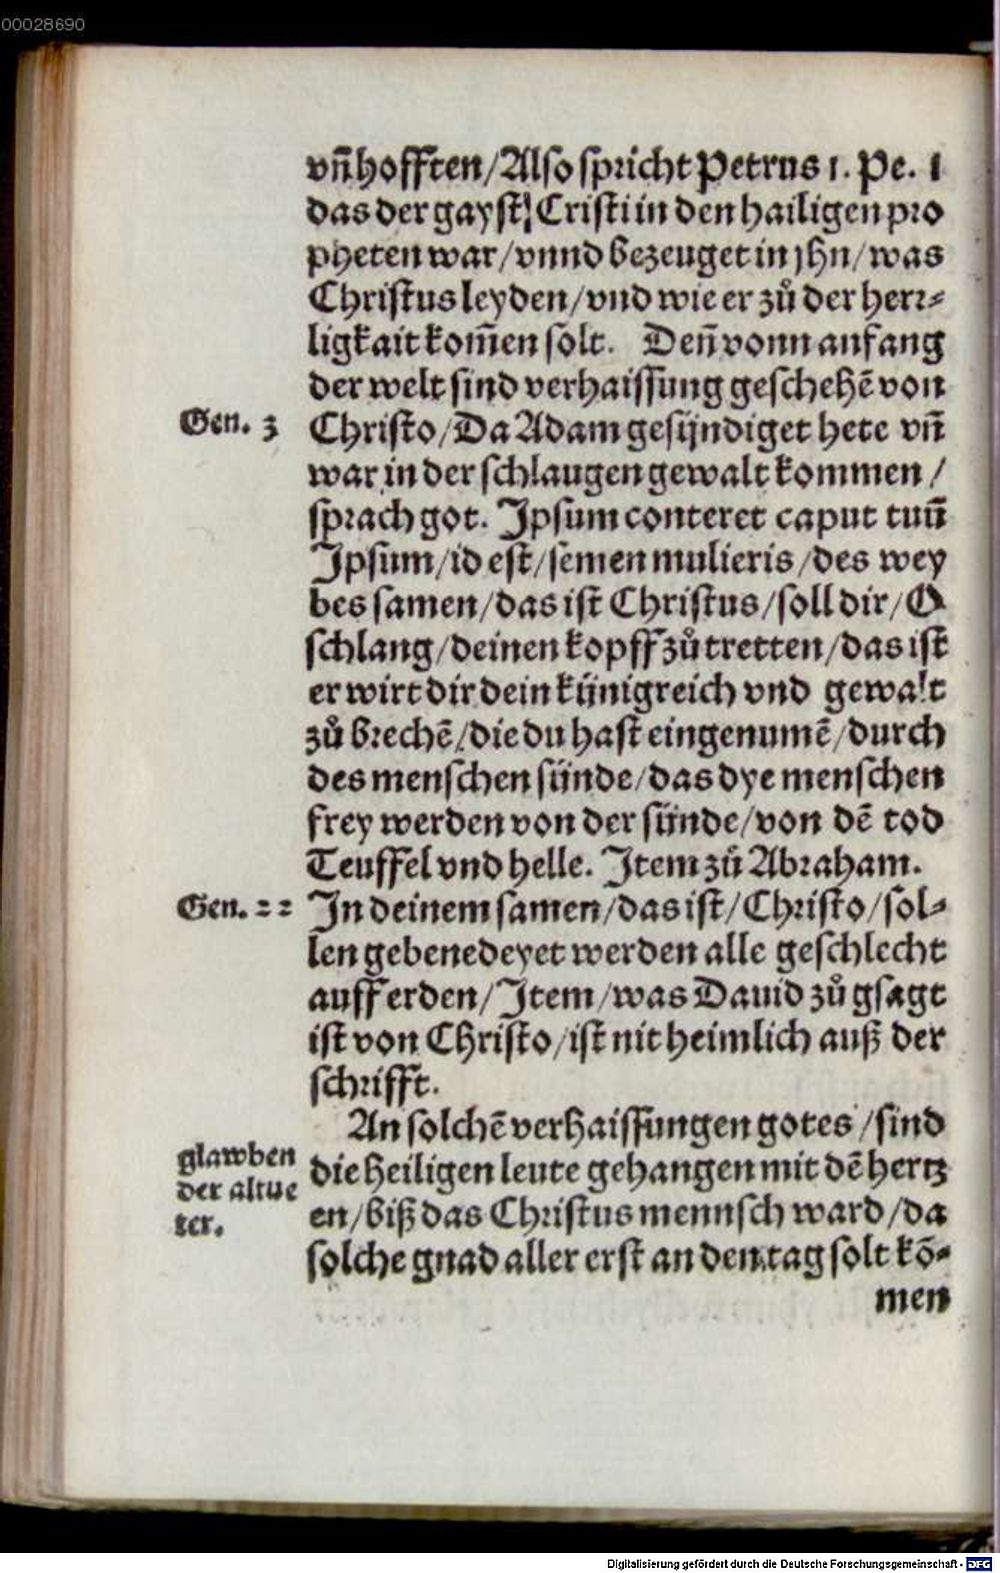 00028690
vñ hofften/Also spricht Petrus 1. Pe. 1
das der gayst Cristi in den hailigen pro
pheten war/vnnd bezeuget in jhn/was
Christus leyden/vnd wie er zů der herr⸗
ligkait kom̃en solt. Den̄ vonn anfang
der welt sind verhaissung geschehē von
Gen. 3
Christo/Da Adam gesündiget hete vñ
war in der schlaugen gewalt kommen/
sprach got. Ipsum conteret caput tuū
Ipsum/id est/semen mulieris/des wey
bes samen/das ist Christus/soll dir/O
schlang/deinen kopff zůtretten/das ist
er wirt dir dein künigreich vnd gewalt
zů brechē/die du hast eingenumē/durch
des menschen sünde/das dye menschen
frey werden von der sünde/von dē tod
Teuffel vnd helle. Item zů Abraham.
Gen. 22
In deinem samen/das ist/Christo/sol⸗
len gebenedeyet werden alle geschlecht
auff erden/Item/was Dauid zů gsagt
ist von Christo/ist nit heimlich auß der
schrifft.
An solchē verhaissungen gotes/sind
glawben
der altue
ter.
die heiligen leute gehangen mit dē hertz
en/biß das Christus mennsch ward/da
solche gnad aller erst an den tag solt kō⸗
men
Digitalisierung gefördert durch die Deutsche Forschungsgemeinschaft - DFG